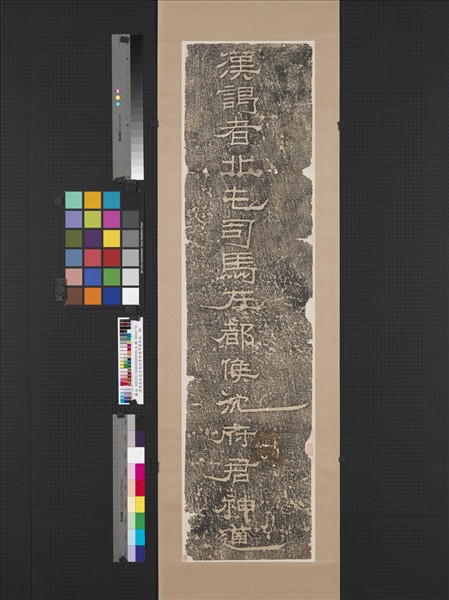 漢謁者北屯司馬左都侯沈府君神道